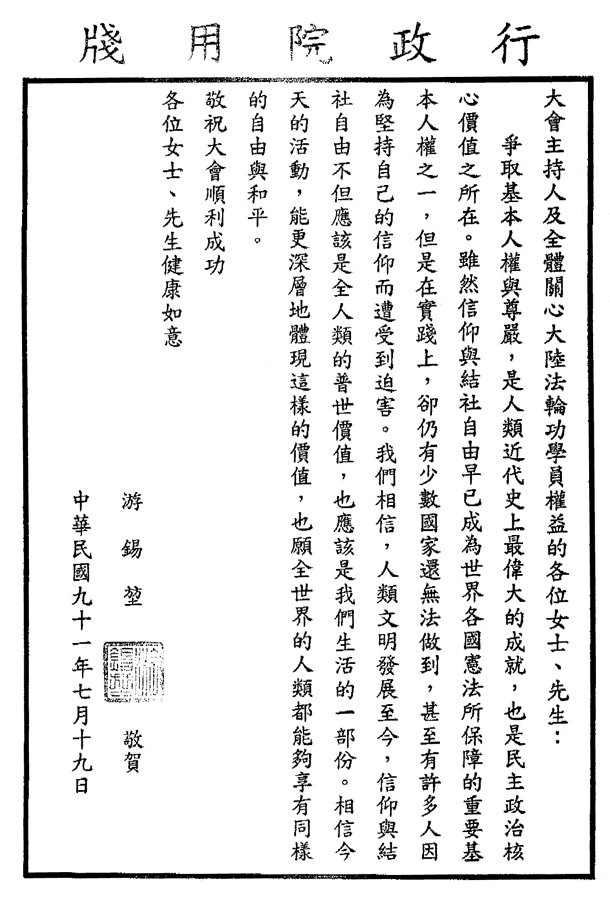 行政院用牋
大會主持人及全體關心大陸法輪功學員權益的各位女士、先生：
爭取基本人權與尊嚴，是人類近代史上最偉大的成就，也是民主政治核
心價值之所在。雖然信仰與結社自由早已成為世界各國憲法所保障的重要基
本人權之一，但是在實踐上，卻仍有少數國家還無法做到，甚至有許多人因
為堅持自己的信仰而遭受到迫害。我們相信，人類文明發展至今，信仰與結
社自由不但應該是全人類的普世價值，也應該是我們生活的一部份。相信今
天的活動，能更深層地體現這樣的價值，也願全世界的人類都能夠享有同樣
的自由與和平。
敬祝大會順利成功
各位女士、先生健康如意
游錫堃 敬賀
中華民國九十一年七月十九日